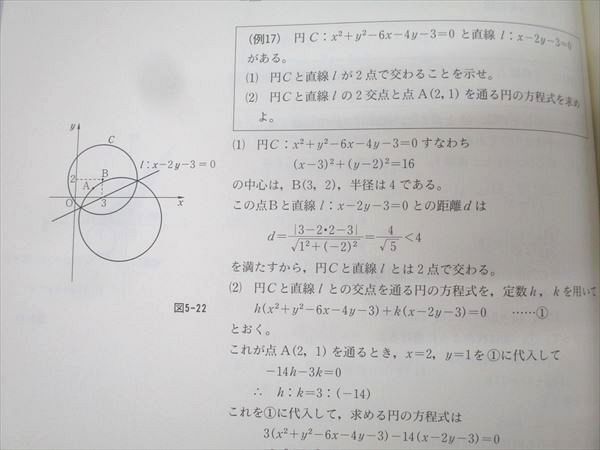 (例17) 円C:x²+y²-6x-4y-3=0と直線l:x-2y-3=0
がある。
(1) 円Cと直線lが2点で交わることを示せ。
(2) 円Cと直線lの2交点と点A(2, 1)を通る円の方程式を求め
よ。
(1) 円C:x²+y²-6x-4y-3=0すなわち
(x-3)²+(y-2)²=16
の中心は,B(3, 2),半径は4である。
この点Bと直線l:x-2y-3=0との距離dは
d=|3-2・2-3|/√1²+(-2)²=4/√5<4
を満たすから,円Cと直線lとは2点で交わる。
(2) 円Cと直線lとの交点を通る円の方程式を,定数h, kを用いて
h(x²+y²-6x-4y-3)+k(x-2y-3)=0 ……①
とおく。
これが点A(2, 1)を通るとき,x=2, y=1を①に代入して
-14h-3k=0
∴ h:k=3:(-14)
これを①に代入して,求める円の方程式は
3(x²+y²-6x-4y-3)-14(x-2y-3)=0
y
C
l:x-2y-3=0
B
2
A
O
3
x
図5-22